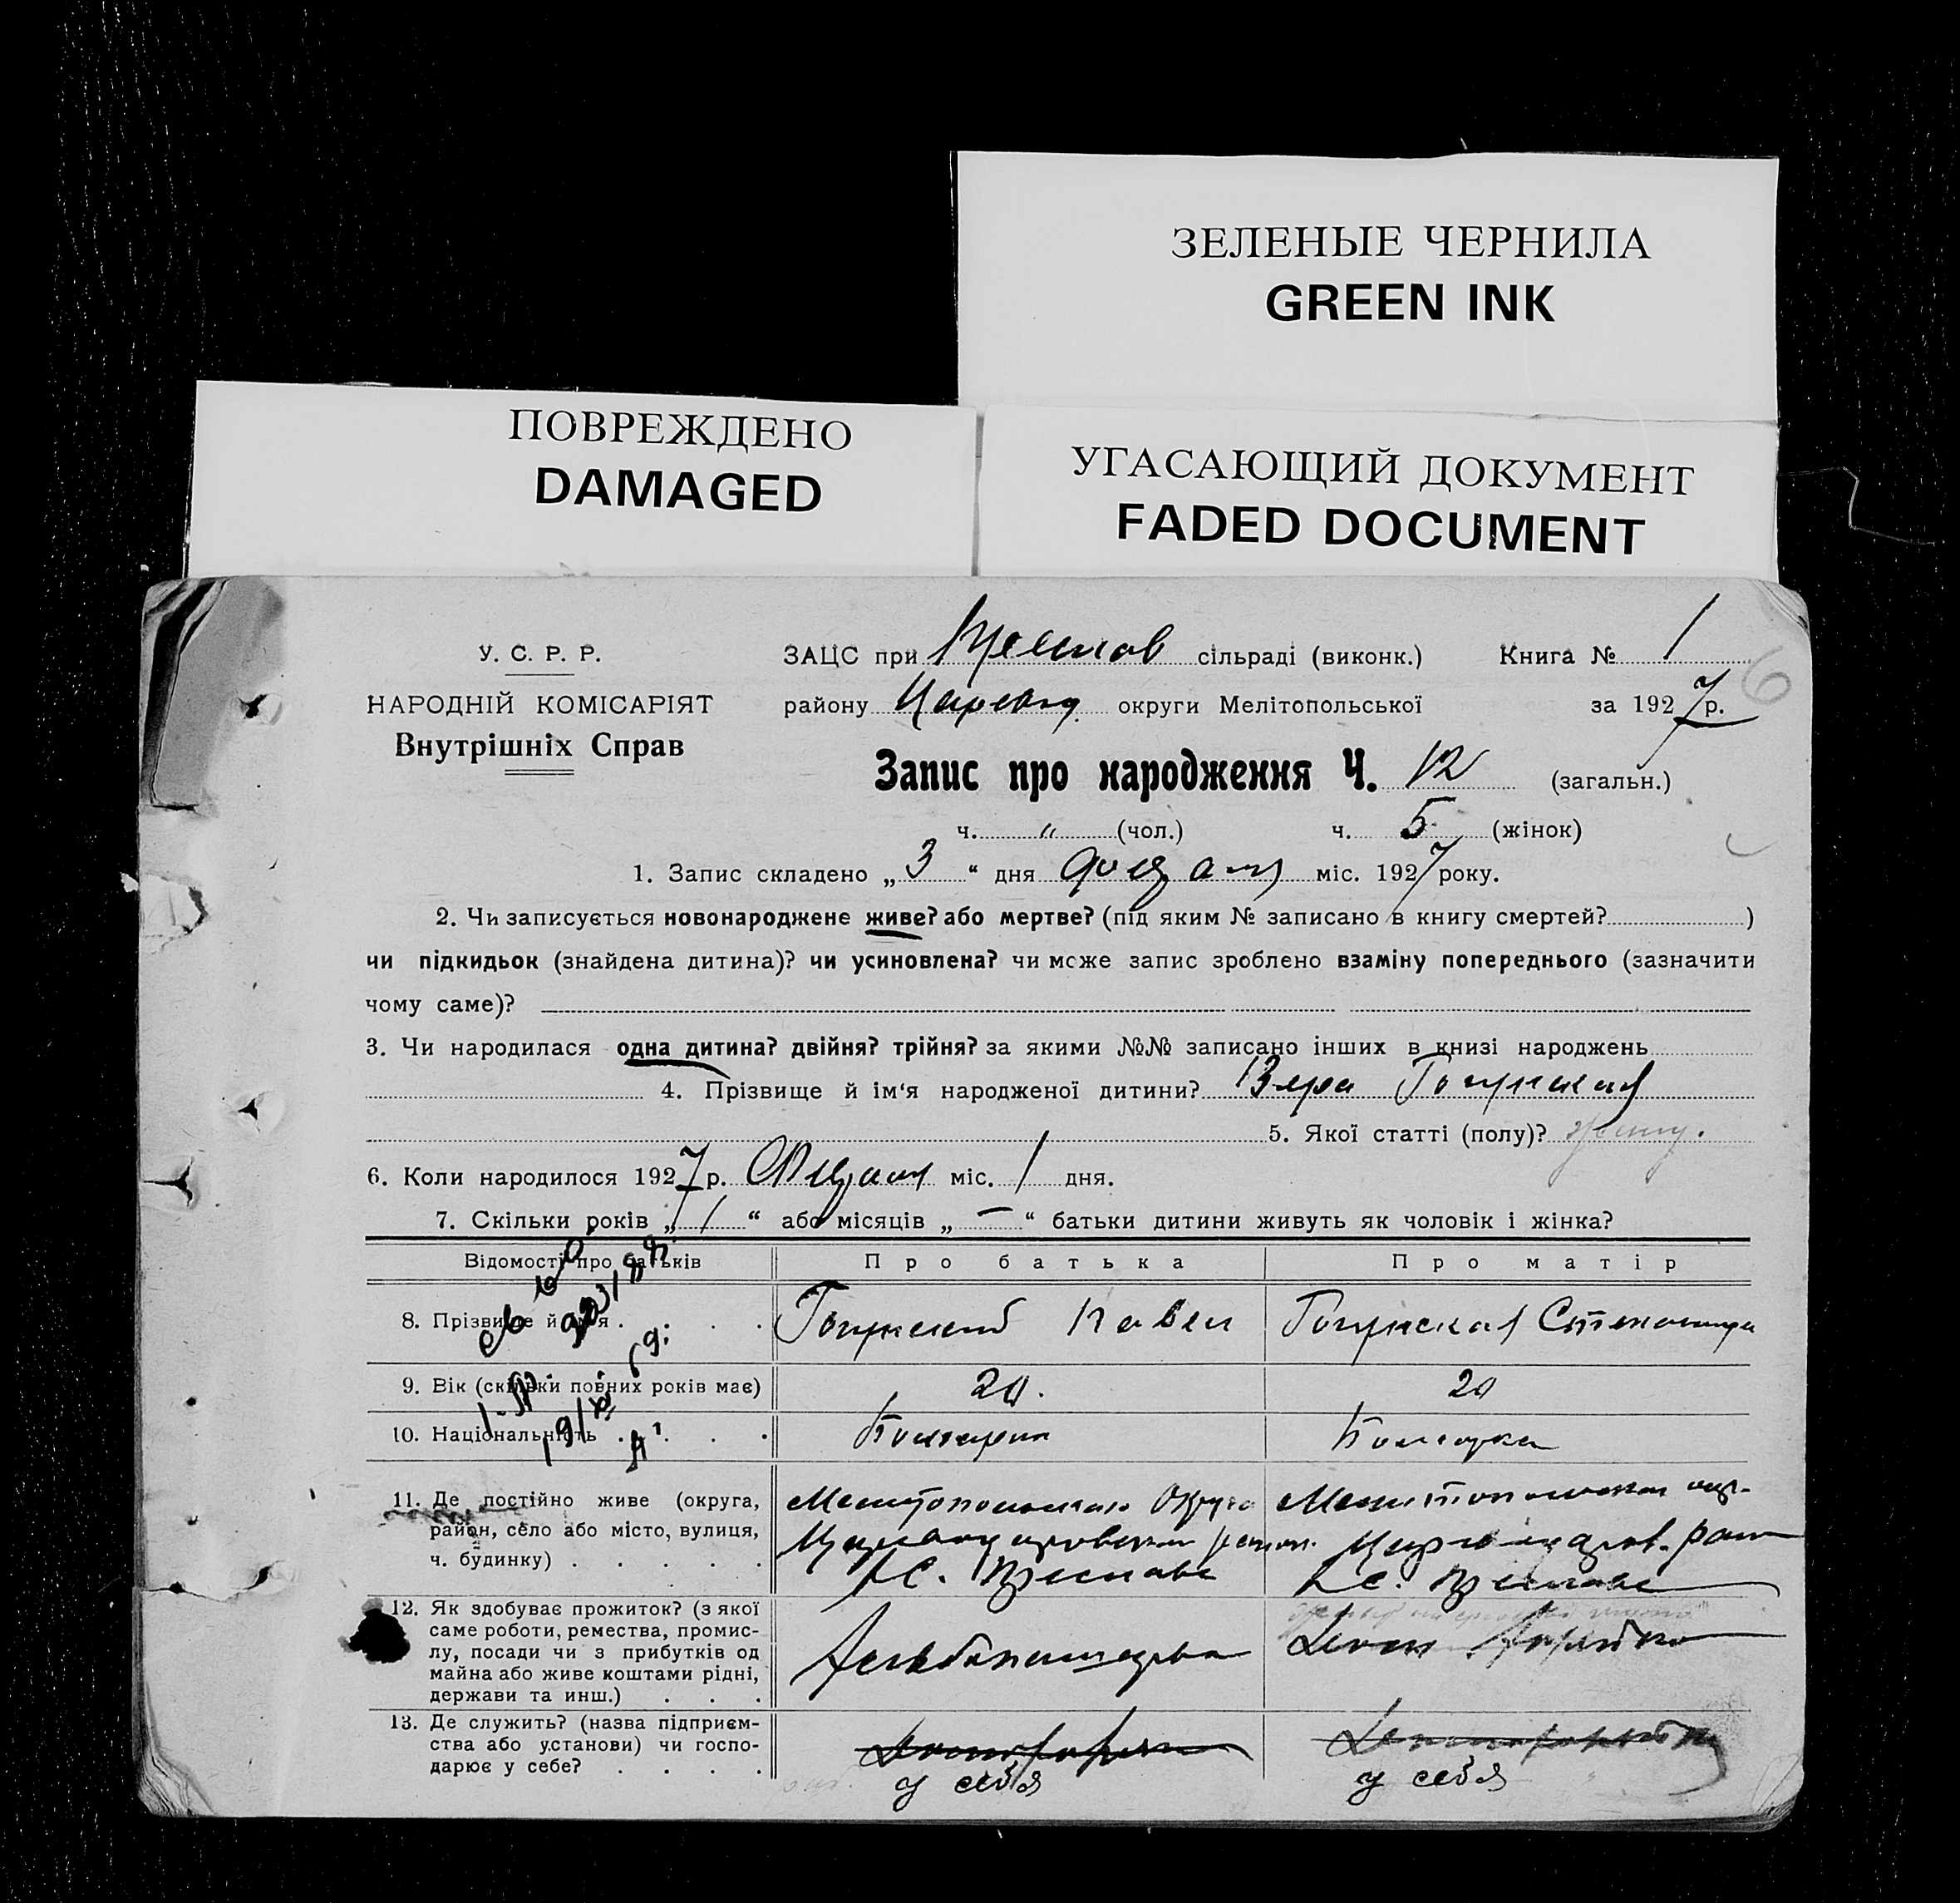 ЗЕЛЕНЫЕ ЧЕРНИЛА
GREEN INK
ПОВРЕЖДЕНО
DAMAGED
УГАСАЮЩИЙ ДОКУМЕНТ
FADED DOCUMENT
У. С. Р. Р.
НАРОДНІЙ КОМІСАРІЯТ
Внутрішніх Справ
ЗАЦС при Преслав сільраді (виконк.) Книга № 1
6
району округи Мелітопольської за 1927 р.
Запис про народження Ч. 12 (загальн.)
ч. " (чол.) ч. 5 (жінок)
1. Запис складено „ 3 “ дня міс. 1927 року.
2. Чи записується новонароджене живе? або мертве? (під яким № записано в книгу смертей? )
чи підкидьок (знайдена дитина)? чи усиновлена? чи може запис зроблено взаміну попереднього (зазначити
чому саме)?
3. Чи народилася одна дитина? двійня? трійня? за якими №№ записано інших в книзі народжень
4. Прізвище й ім‘я народженої дитини? Вера
5. Якої статті (полу)?
6. Коли народилося 1927 р. міс. 1 дня.
7. Скільки років „ 1 “ або місяців „ — “ батьки дитини живуть як чоловік і жінка?
Відомості про батьків Про батька Про матір
8. Прізвище й ім'я Павел
9. Вік (скільки повних років має) 20. 20
10. Національність Болгарин Болгарка
11. Де постійно живе (округа,
район, село або місто, вулиця,
ч. будинку) с. Преслав с. Преслав
12. Як здобуває прожиток? (з якої
саме роботи, ремества, промис-
лу, посади чи з прибутків од
майна або живе коштами рідні,
держави та инш.)
13. Де служить? (назва підприєм-
ства або установи) чи госпо-
дарює у себе?
у себя у себя